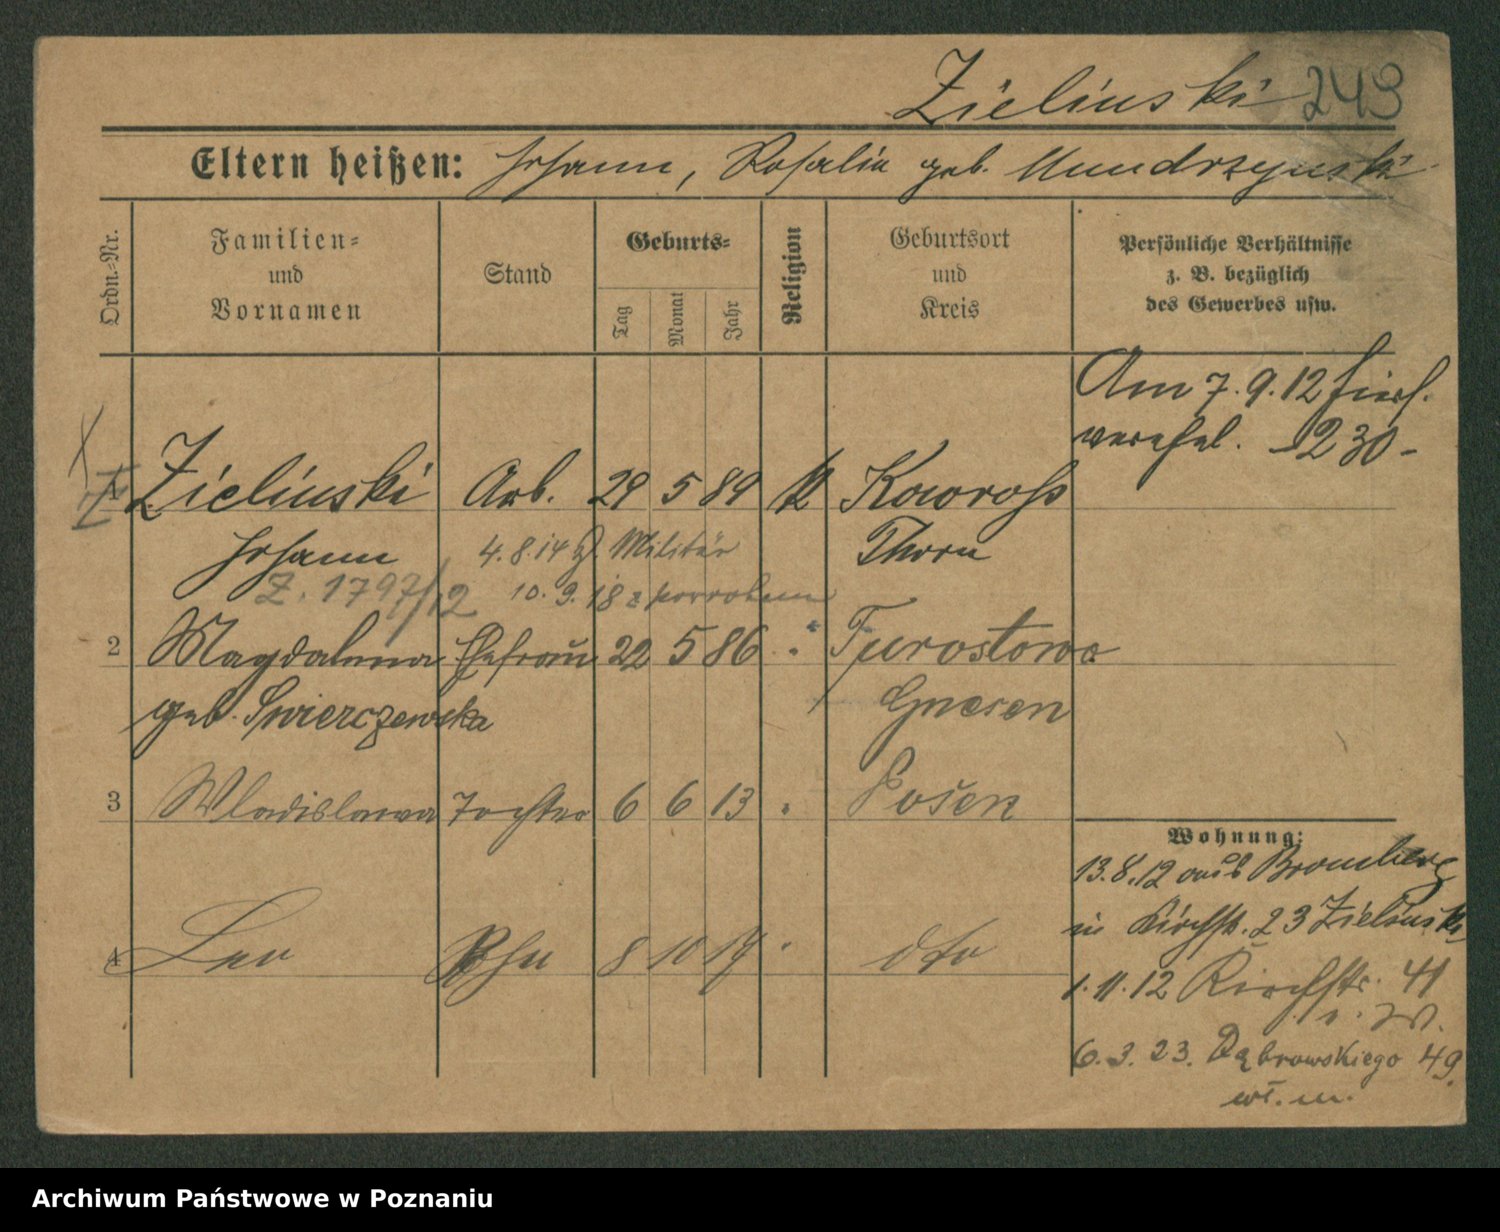 Zielinski 243
Eltern heißen: Johann, Rosalia geb. Mundrzynski
Ordn.-Nr.
Familien-
und
Vornamen
Stand
Geburts-
Tag
Monat
Jahr
Religion
Geburtsort
und
Kreis
Persönliche Verhältnisse
z. B. bezüglich
des Gewerbes usw.
Am 7.9.12 hier
verehel. 230
1 Zielinski Arb. 29 5 89 k Kowross
Johann 4.8.14 z. Militär Thorn
Z. 1797/12 10.9.18 z
2 Magdalena Ehefrau 22 5 86 " Turostowo
geb. Swierczewska Gnesen
3 Wladislawa Tochter 6 6 13 " Posen
4 Leo Sohn 8 10 19 " dto
Wohnung:
13.8.12 aus Bromberg
in Kirchstr. 23 Zielinski
1.11.12 Kirchstr. 41
e. W.
6.3.23. Dąbrowskiego 49.
wł. m.
Archiwum Państwowe w Poznaniu